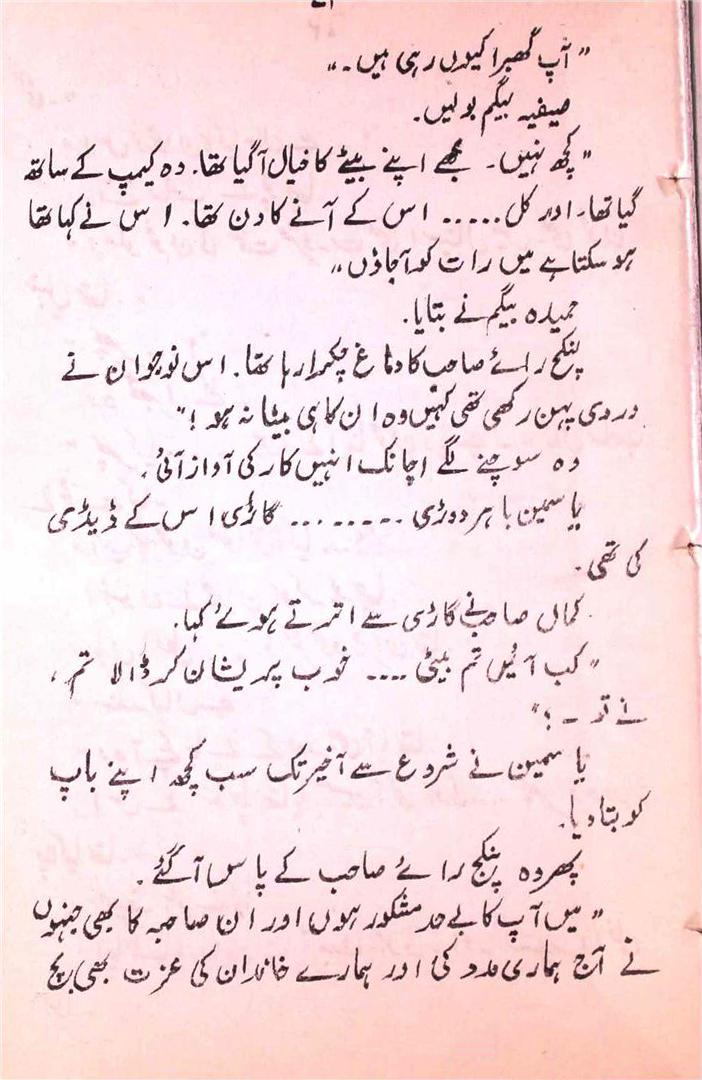 "آپ گھبرا کیوں رہی ہیں۔"
صیفیہ بیگم بولیں۔
"کچھ نہیں۔ مجھے اپنے بیٹے کا خیال آ گیا تھا۔ وہ کیمپ کے ساتھ
گیا تھا۔ اور کل ..... اس کے آنے کا دن تھا۔ اس نے کہا تھا
ہو سکتا ہے میں رات کو آ جاؤں"
حمیدہ بیگم نے بتایا۔
پنکج رائے صاحب کا دماغ چکرا رہا تھا۔ اس نوجوان نے
وردی پہن رکھی تھی کہیں وہ ان کا ہی بیٹا نہ ہو!"
وہ سوچنے لگے اچانک انہیں کار کی آواز آئی۔
یاسمین باہر دوڑی ........ گاڑی اس کے ڈیڈی
کی تھی۔
کمال صاحب نے گاڑی سے اترتے ہوئے کہا۔
"کب آئیں تم بیٹی .... خوب پریشان کر ڈالا تم،
نے تو ۔ ؟"
یاسمین نے شروع سے آخیر تک سب کچھ اپنے باپ
کو بتا دیا۔
پھر وہ پنکج رائے صاحب کے پاس آ گئے۔
"میں آپ کا بے حد مشکور ہوں اور ان صاحبہ کا بھی جنہوں
نے آج ہماری مدد کی اور ہمارے خاندان کی عزت بھی بچ